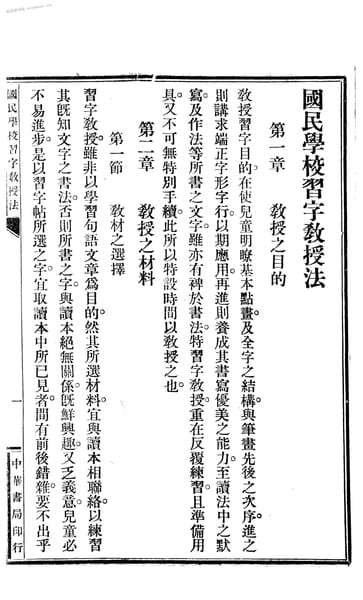 國民學校習字教授法
第一章　教授之目的
教授習字目的。在使兒童明瞭基本點畫。及全字之結構。與筆畫先後之次序。進之
則講求端正字形字行。以期應用。再進則養成其書寫優美之能力。至讀法中之默
寫。及作法等所書之文字。雖亦有裨於書法。特習字教授。重在反覆練習。且準備用
具。又不可無特別手續。此所以特設時間以教授之也。
第二章　教授之材料
第一節　教材之選擇
習字教授。雖非以學習句語文章爲目的。然其所選材料。宜與讀本相聯絡。以練習
其既知文字之書法。否則所書之字。與讀本絕無關係。既鮮興趣。又乏義意。兒童必
不易進步。是以習字帖所選之字。宜取讀本中所已見者。間有前後錯雜。要不出乎
國民學校習字教授法
一
中華書局印行